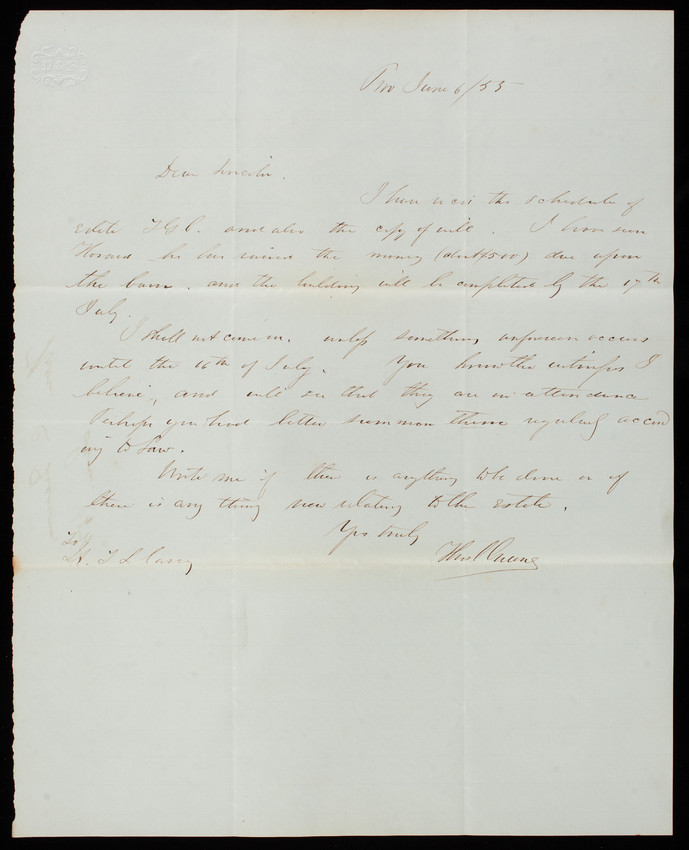 Prov June 6/55
Dear Lincoln.
I have recd the schedule of
estate T G C. and also the copy of will. I have seen
Howard he has raised the money (abt $500) due upon
the barn. and the building will be completed by the 17th
July.
I shall not come on. unless something unforseen occurs
until the 16th of July. You know the witnesses I
believe, and will see that they are in attendance
Perhaps you had better summon them regularly accord
ing to Law.
Write me if there is anything to be done or if
there is any thing new relating to the estate.
Yrs truly
Thos L Casey
To
Lt. T L Casey